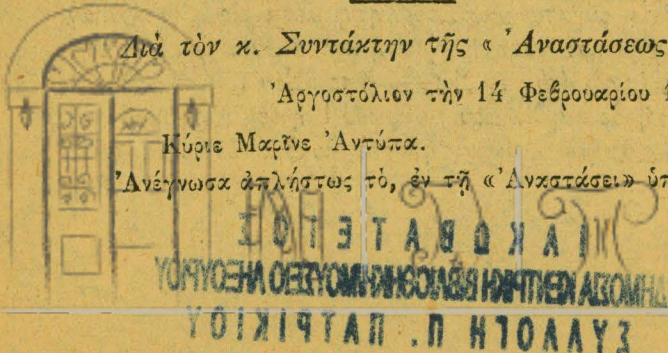 Διὰ τὸν κ. Συντάκτην τῆς « Ἀναστάσεως
Ἀργοστόλιον τὴν 14 Φεβρουαρίου
Κύριε Μαρῖνε Ἀντύπα.
Ἀνέγνωσα ἀπλήστως τὸ, ἐν τῇ «Ἀναστάσει» ὑπ
ΙΑΚΩΒΑΤΕΙΟΣ
ΔΗΜΟΣΙΑ ΚΕΝΤΡΙΚΗ ΒΙΒΛΙΟΘΗΚΗ ΜΟΥΣΕΙΟ ΛΗΞΟΥΡΙΟΥ
ΣΥΛΛΟΓΗ Π. ΠΑΤΡΙΚΙΟΥ